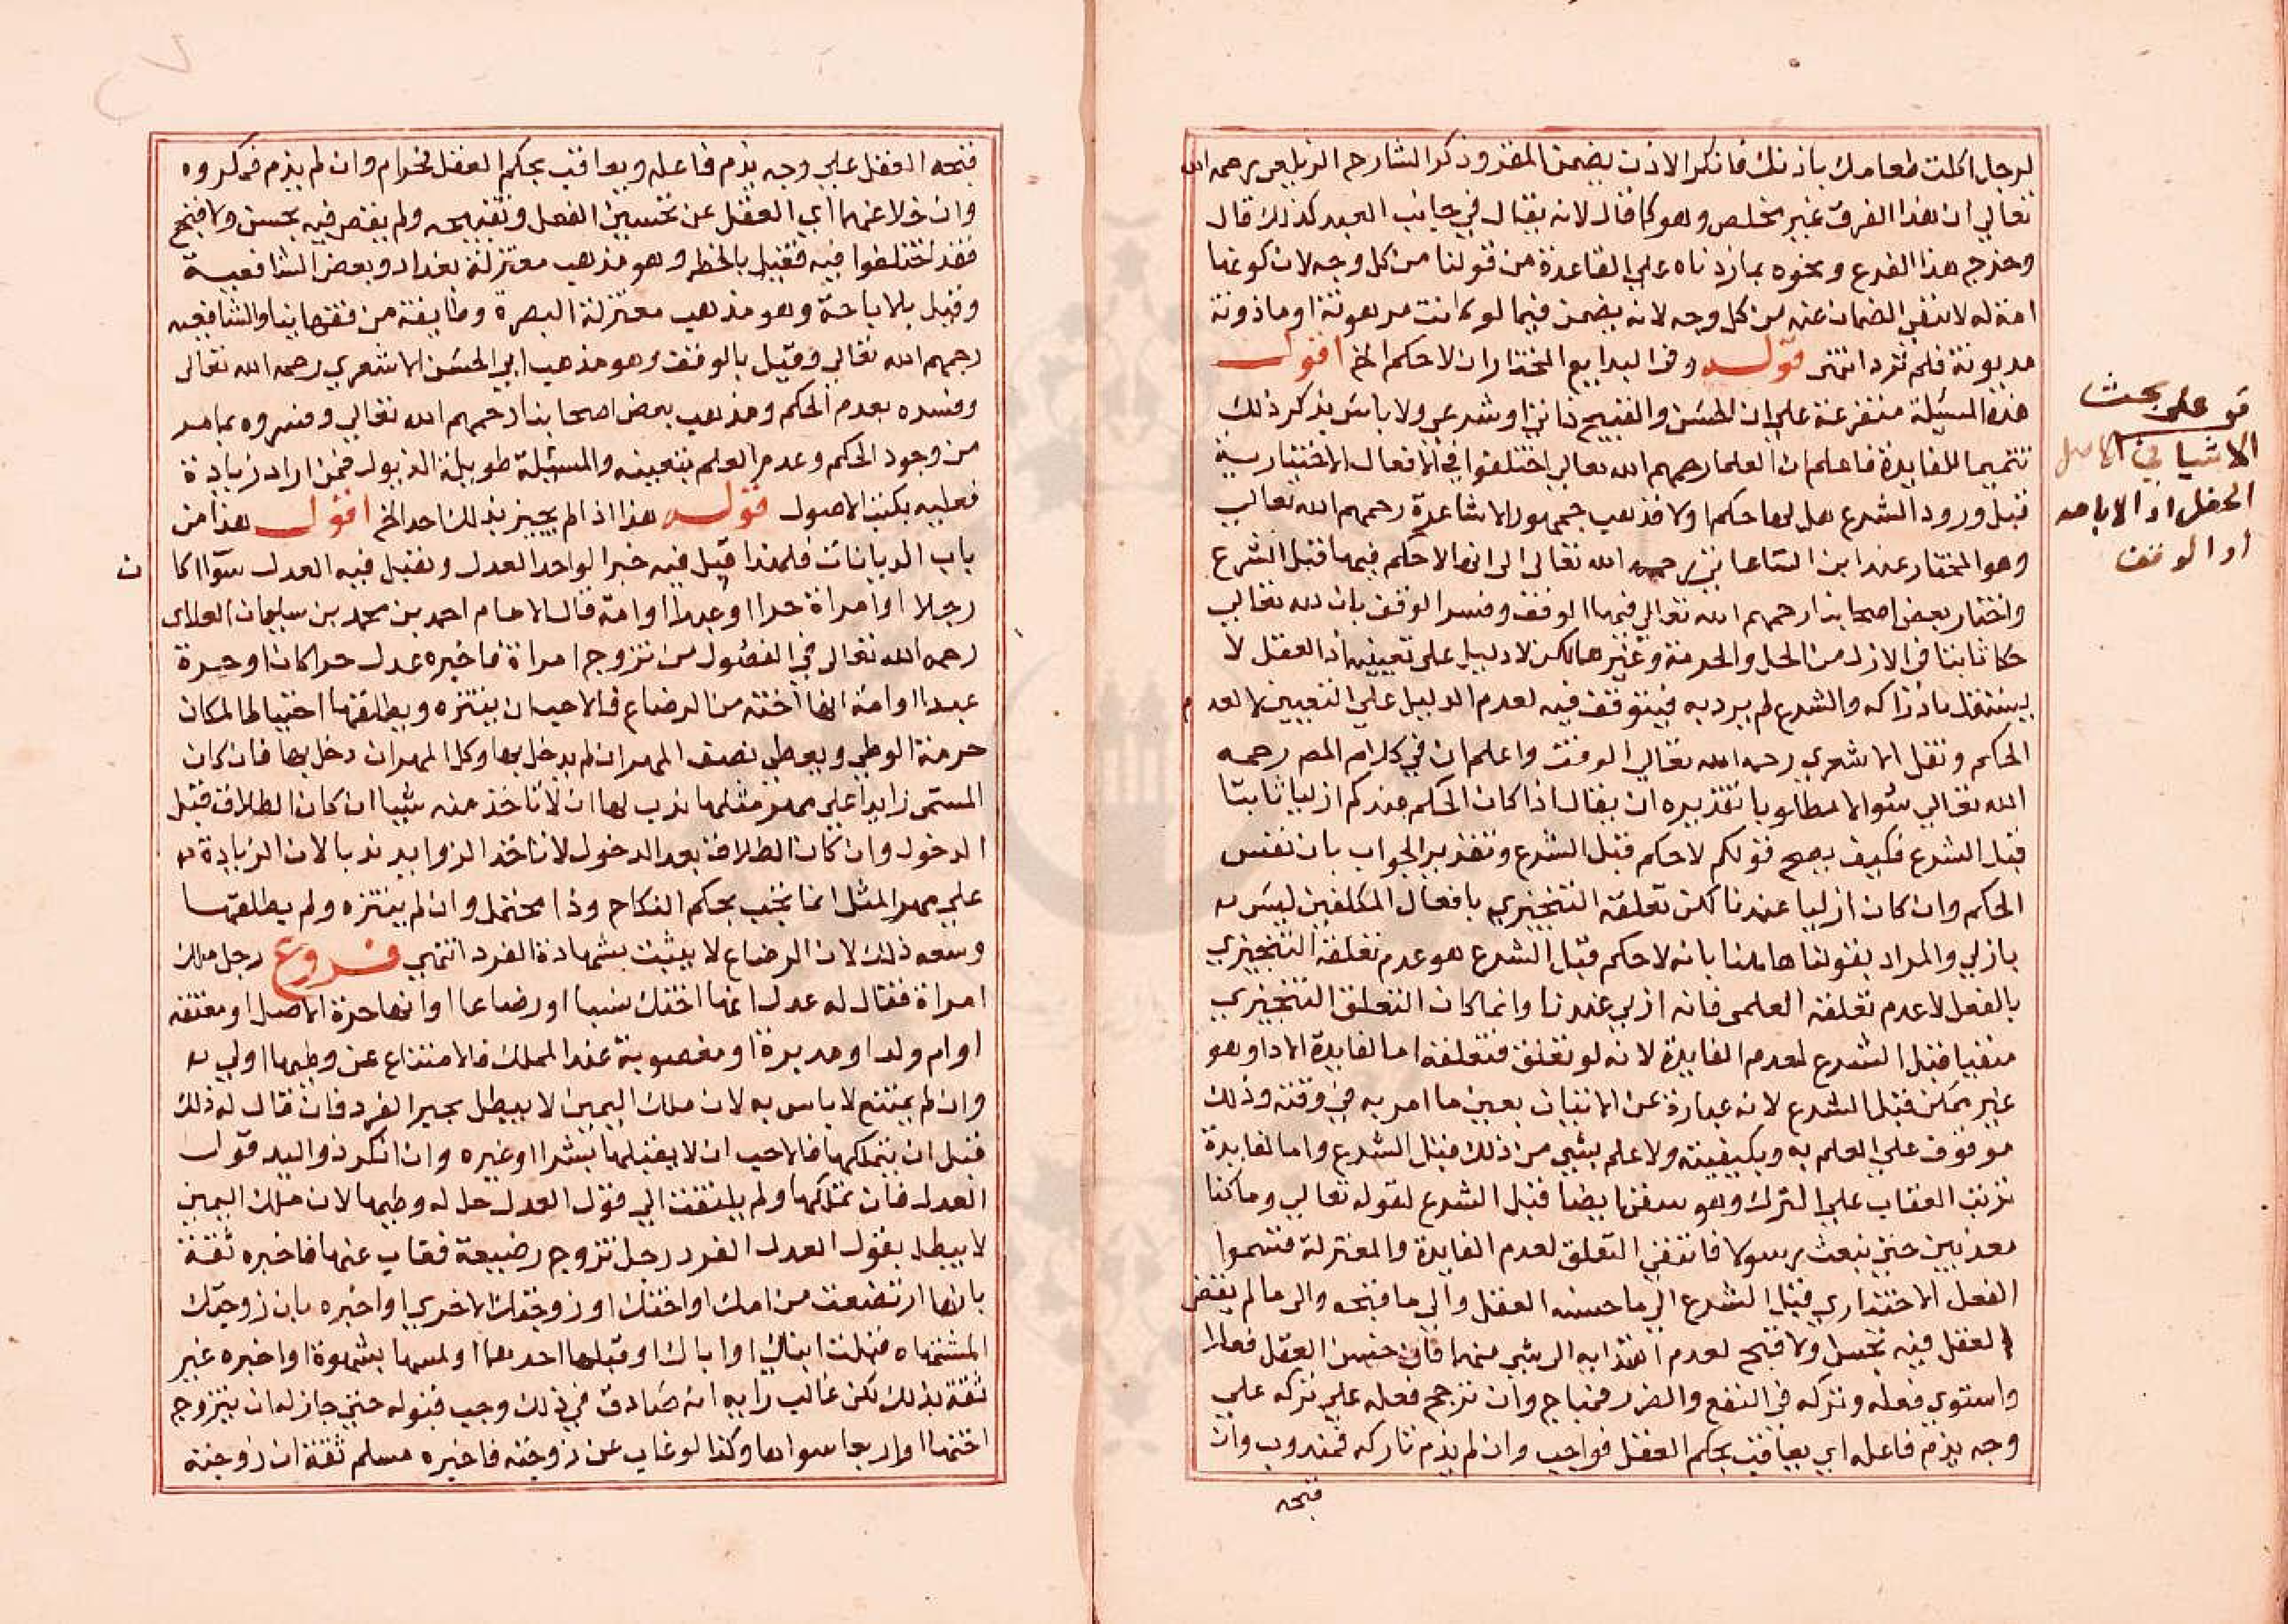 لرجل اكلت طعامك باذنك فانكر الاذن يضمن المقر وذكر الشارح الزيلعي رحمه الله
تعالي ان هذا الفرق غير مخلص وهو كما قال لانه يقال في جانب العبد كذلك قال
وخرج هذا الفرع ونحوه بما زدناه علي القاعدة من قولنا من كل وجه لان كونها
امة له لا ينفي الضمان عنه من كل وجه لانه يضمن فيما لو كانت مرهونة او ماذونة
مديونة فلم ترد انتهي قوله وفي البدايع المختار ان لا حكم الخ اقول
هذه المسئلة متفرعة علي ان الحسن والقبيح ذاتي او شرعي ولا باس بذكر ذلك
تتميما للفايدة فاعلم ان العلما رحمهم الله تعالي اختلفوا في الافعال الاختيارية
قبل ورود الشرع هل لها حكم اولا فذهب جمهور الاشاعرة رحمهم الله تعالي
وهو المختار عند ابن الساعاتي رحمه الله تعالي الي انه لا حكم فيها قبل الشرع
واختار بعض اصحابنا رحمهم الله تعالي فيها الوقف وفسر الوقف بان لله تعالي
حكما ثابتا في الازل من الحل والحرمة وغيرهما لكن لا دليل علي تعيينه اذ العقل لا
يستقل بادراكه والشرع لم يرد به فيتوقف فيه لعدم الدليل علي التعيين لا لعدم
الحكم ونقل الاشعري رحمه الله تعالي الوقف واعلم ان في كلام المص رحمه
الله تعالي سئوالا مطلوبا تقديره ان يقال اذا كان الحكم عندكم ازليا ثابتا
قبل الشرع فكيف يصح قولكم لا حكم قبل الشرع وتقدير الجواب بان نفس
الحكم وان كان ازليا عندنا لكن تعلقه التنجيزي بافعال المكلفين ليس
بازلي والمراد بقولنا هاهنا بانه لا حكم قبل الشرع هو عدم تعلقه التنجيزي
بالفعل لا عدم تعلقه العلمي فانه ازلي عندنا وانما كان التعلق التنجيزي
منفيا قبل الشرع لعدم الفايدة لانه لو تعلق فتعلقه اما لفايدة الادا وهو
غير ممكن قبل الشرع لانه عبارة عن الاتيان بعين ما امر به في وقته وذلك
موقوف علي العلم به وبكيفيته ولا علم بشي من ذلك قبل الشرع واما لفايدة
ترتب العقاب علي الترك وهو منفي ايضا قبل الشرع لقوله تعالي وما كنا
معذبين حتي نبعث رسولا فانتفي التعلق لعدم الفايدة والمعتزلة قسموا
الفعل الاختياري قبل الشرع الي ما حسنه العقل والي ما قبحه والي ما لم يقض
العقل فيه بحسن ولا قبح لعدم اهتدايه الي شي منهما فان حسن العقل فعلا
واستوي فعله وتركه في النفع والضرر فمباح وان ترجح فعله علي تركه علي
وجه يذم فاعله اي يعاقب بحكم العقل فواجب وان لم يذم تاركه فمندوب وان
قبحه
قو علي بحث
الاشيا في الاصل
الحظر او الاباحه
او الوقف
قبحه العقل علي وجه يذم فاعله ويعاقب بحكم العقل فحرام وان لم يذم فمكروه
وان خلا عنهما اي العقل عن تحسين الفعل وتقبيحه ولم يقض فيه بحسن ولا قبح
فقد اختلفوا فيه فقيل بالحظر وهو مذهب معتزلة بغداد وبعض الشافعية
وقيل بالاباحة وهو مذهب معتزلة البصرة وطايفة من فقهاينا والشافعيه
رحمهم الله تعالي وقيل بالوقف وهو مذهب ابي الحسن الاشعري رحمه الله تعالي
وفسره بعدم الحكم ومذهب بعض اصحابنا رحمهم الله تعالي وفسروه بما مر
من وجود الحكم وعدم العلم بتعيينه والمسئلة طويلة الذيول فمن اراد زيادة
فعليه بكتب الاصول قوله هذا اذا لم يخبر بذلك احد الخ اقول هذا من
باب الديانات فلهذا قبل فيه خبر الواحد العدل وتقبل فيه العدل سوا كان
رجلا او امراة حرا او عبدا او امة قال الامام احمد بن محمد بن سليمان العلاي
رحمه الله تعالي في الفصول من تزوج امراة فاخبره عدل حرا كان او حرة
عبدا او امة انها اخته من الرضاع فالاحب ان يتنزه ويطلقها احتياطا لمكان
حرمة الوطي ويعطي نصف المهر ان لم يدخل بها وكل المهر ان دخل بها فان كان
المسمي زايدا علي مهر مثلها ندب لها ان لا تاخذ منه شيا ان كان الطلاق قبل
الدخول وان كان الطلاق بعد الدخول لا تاخذ الزوايد ندبا لان الزيادة
علي مهر المثل انما تجب بحكم النكاح وذا محتمل وان لم يتنزه ولم يطلقها
وسعه ذلك لان الرضاع لا يثبت بشهادة الفرد انتهي فروع رجل ملك
امراة فقال له عدل انها اختك نسبا او رضاعا او انها حرة الاصل او معتقه
او ام ولد او مدبرة او مغصوبة عند المملك فالامتناع عن وطيها اولي
وان لم يمتنع لا باس به لان ملك اليمين لا يبطل بخبر الفرد فان قال له ذلك
قبل ان يتملكها فالاحب ان لا يقبلها بشرا وغيره وان انكر ذو اليد قول
العدل فان تملكها ولم يلتفت الي قول العدل حل له وطيها لان ملك اليمين
لا يبطل بقول العدل الفرد رجل تزوج رضيعة فغاب عنها فاخبره ثقة
بانها ارتضعت من امك او اختك او زوجتك الاخري او اخبره بان زوجتك
المشتهاه قبلت ابنك او اباك او قبلها احدهما او لمسها بشهوة او اخبره غير
ثقة بذلك لكن غالب رايه انه صادق في ذلك وجب قبوله حتي جاز له ان يتزوج
اختها او اربعا سواها وكذا لو غاب عن زوجته فاخبره مسلم ثقة ان زوجته